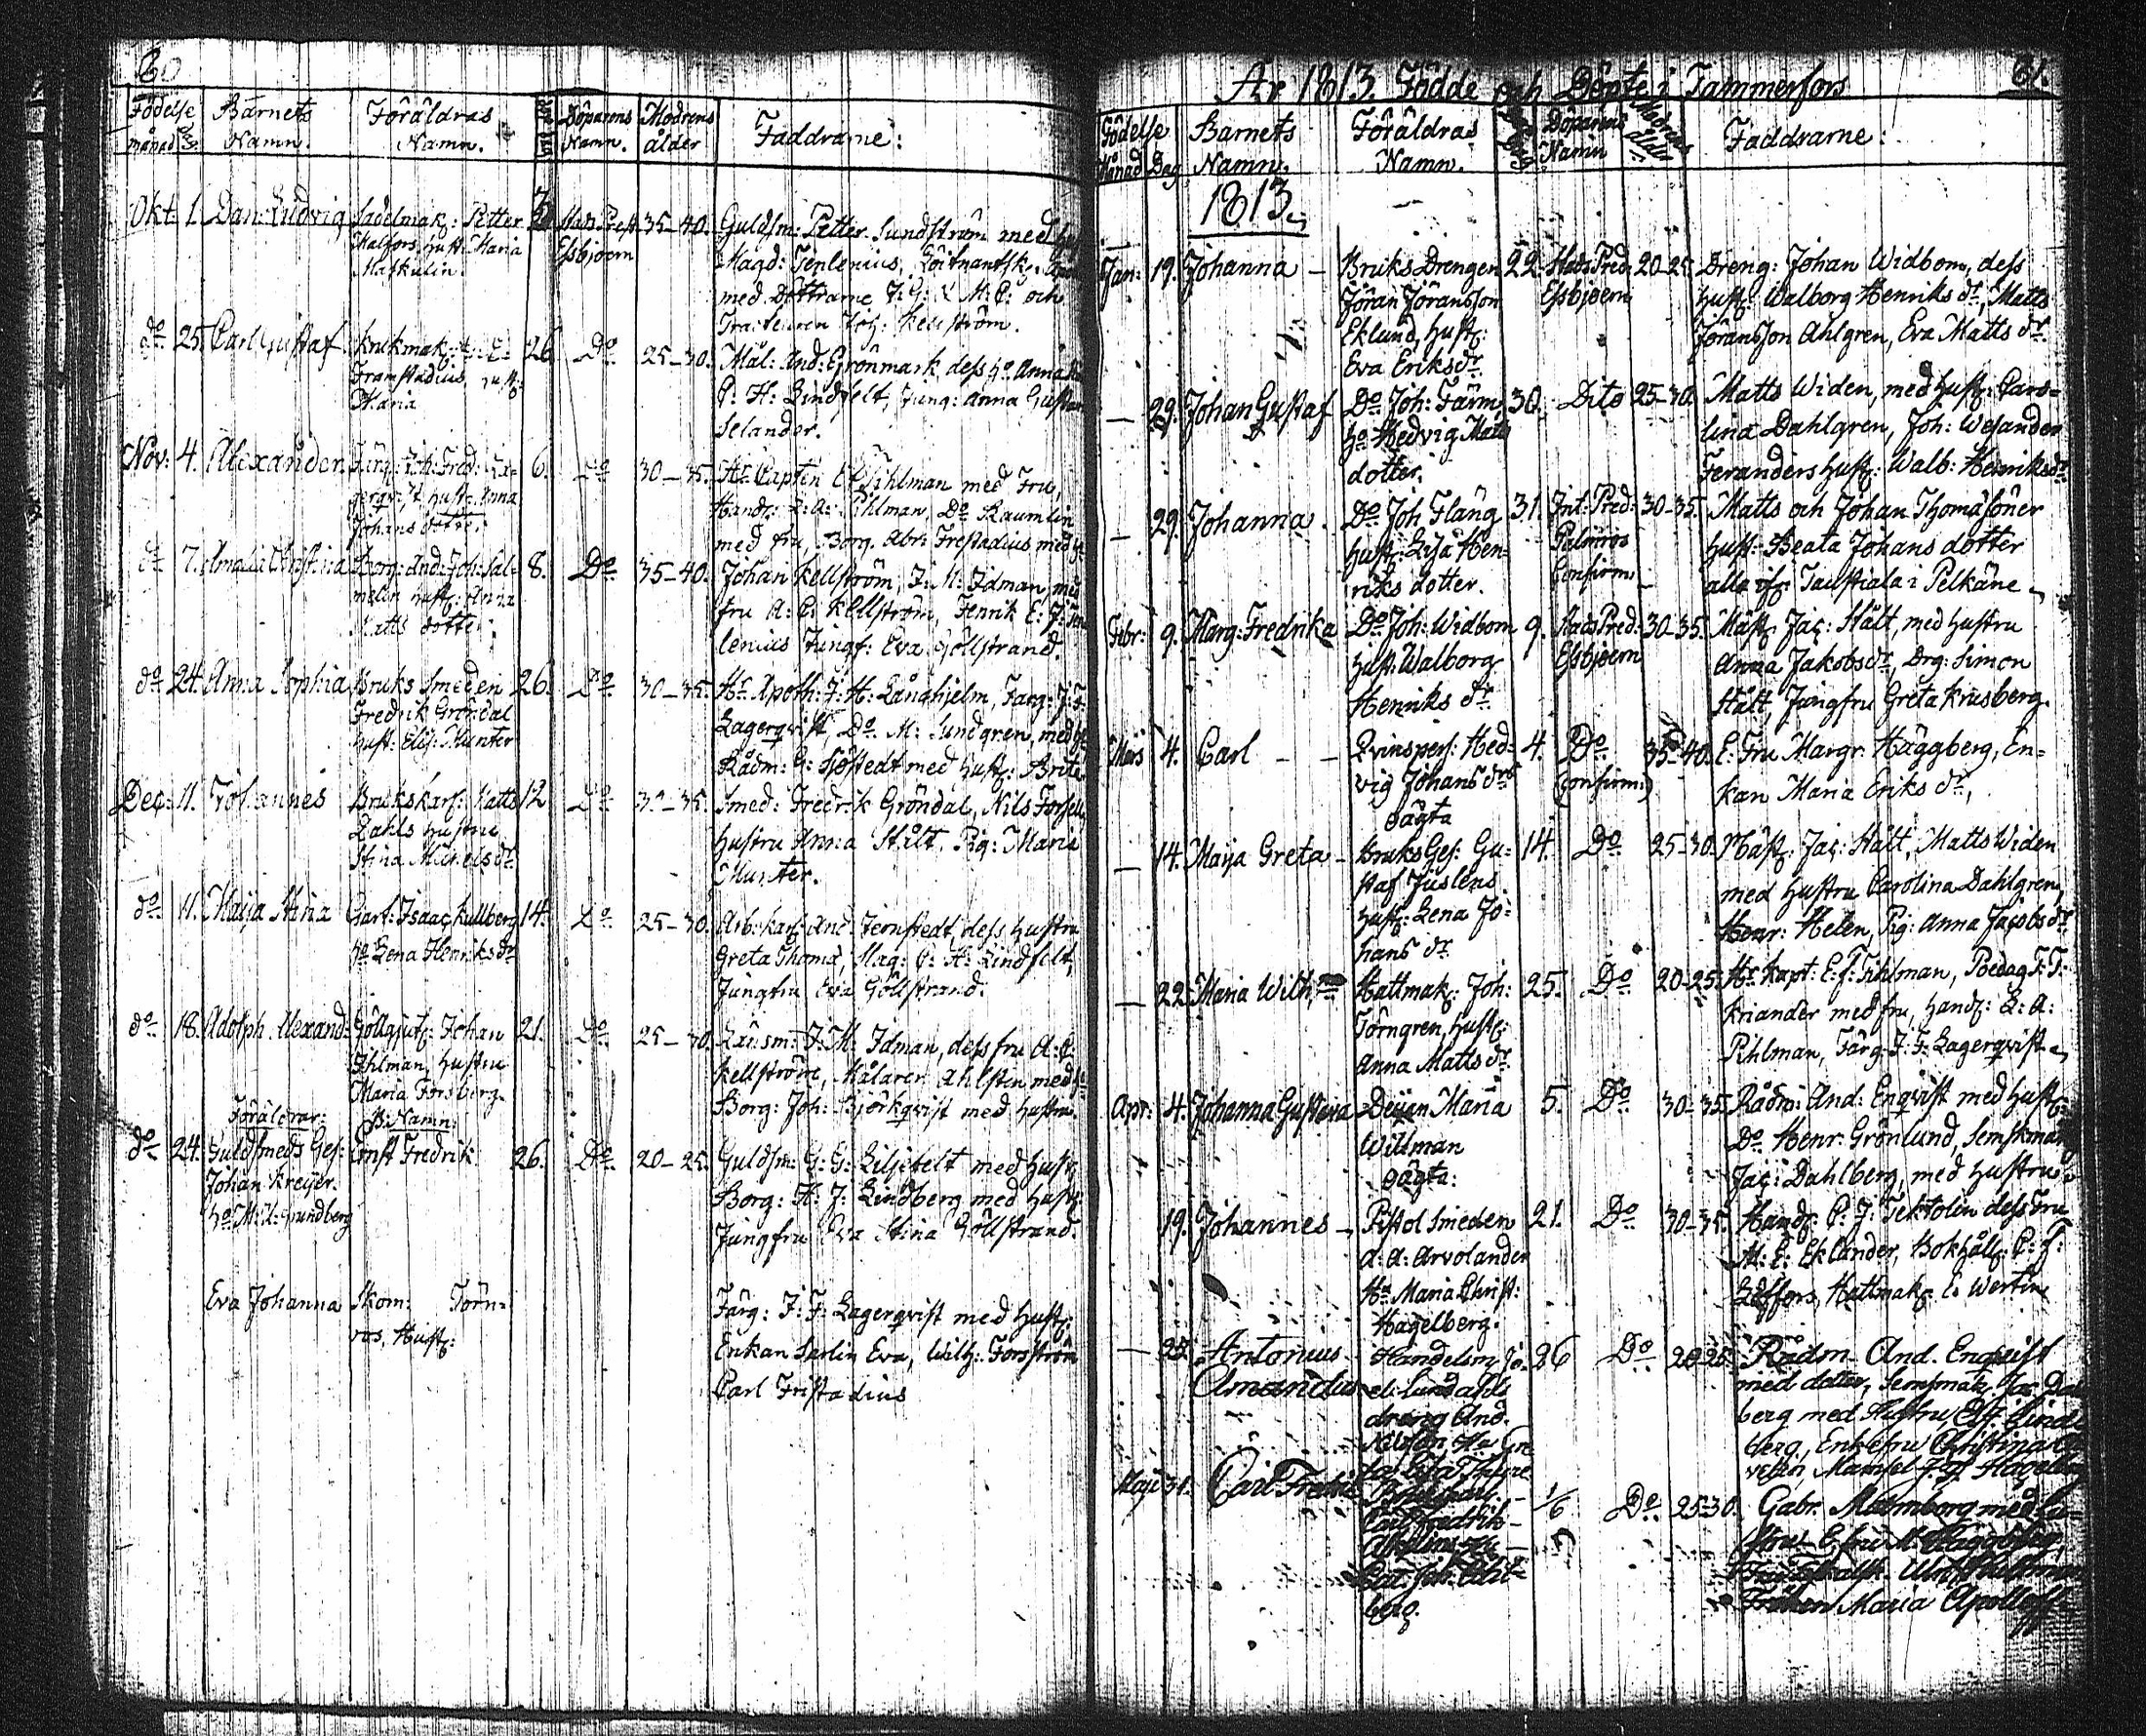 60
Födelse Barnets Föräldras Döparens Modrens Faddrarne:
månad Namn. Namn. Namn. ålder
Okt. 1. Dan: Ludvig Sadelmak: Petter Stads Pred. 35–40. Guldsm: Petter Sundström med
Malfors, hust: Maria Essbjoern Magd: Tenlenius, Löitnantsk:
med Döttrarne J: G: & M: C: och
Tracteuren Joh: Kellström.
do 25. Carl Gustaf Krukmak: 26 Do 25–30. Mål: And: Grönmark, dess ho Anna
Framstadius, hust: C: H: Lindfelt, Jung: Anna Gustava
Maria Selander.
Nov: 4. Alexander Färg: Joh: Fred: La= 6. Do 30–35. Hr Capten E f Tihlman med Fru,
gerqvist, hust: Anna Handl: L: A: Pihlman, Do Raumlin
Johans dotter. med fru, Borg. Abr: Frestadius med
do 7. Amalia Christina Borg: And: Joh: Sal= 8. Do 35–40. Johan Kellström, J: M: Idman, med
melin hust: Anna fru A: C: Kellström, Henrik E: J: Ten
Matts dotter. lenius Jungf: Eva Göllstrand.
do 24. Anna Sophia Bruks Smeden 26. Do 30–35. Hr Apoth: J: H: Långhjelm, Färg: J: F:
Fredrik Gröndal Lagerqvist, Do M: Sundgren, med
hust: Elis: Munter Rådm: G: Sjöstedt med hust: Brita
Dec: 11. Johannes Brukskarl: Matts 12 Do 30–35. Smed: Fredrik Gröndal, Nils Forsell,
Dahls hustru hustru Anna Stålt. Pig: Maria
Stina Michelsdr Munter.
do 11. Maija Stina Garf: Isaac Kullberg 14. Do 25–30. Arb:karl: And: Jernstedt, dess hustru
ho Lena Henriksdr Greta Thoma, Mag: C: H: Lindfelt,
Jungfru Eva Göllstrand.
do 18. Adolph Alexand: Göllgjut: Johan 21. Do 25–30. Länsm: J: M: Idman, dess fru A: C:
Ihlman, hustru Kellström, Målaren Ahlsten med ho
Maria Forsberg. Borg: Joh: Björkqvist med hustru.
Föräldrar: B: Namn:
do 24. Guldsmeds Ges: Ernst Fredrik 26. Do 20–25. Guldsm: G: G: Liljefelt med hust:
Johan Kreijer. Borg: H: J: Lindberg med hust:
ho M: L: Grundberg Jungfru Eva Stina Göllstrand.
Eva Johanna Skom: Törn= Färg: J: F: Lagerqvist med hust:
ros, Hust: Enkan Sarlin Eva, Wilh: Forsström
Carl Fristadius
År 1813. Födde och Döpte i Tammerfors 61.
Födelse Barnets Föräldras Döparens Modrens Faddrarne:
Månad Dag Namn. Namn. Namn ålder
1813.
Jan: 19. Johanna – Bruks Drengen 22. Stads Pred: 20–25. Dreng: Johan Widbom, dess
Jöran Jöransson Essbjoern hust: Walborg Henriks dr, Matts
Eklund, hust: Jöransson Ahlgren, Eva Matts dr.
Eva Eriksdr.
– 29. Johan Gustaf Do Joh: Färm, 30. Dito 25–30. Matts Widen, med hust: Caro=
ho Hedvig Matts lina Dahlgren, Joh: Welander
dotter. Feranders hust: Walb: Henriksdr
– 29. Johanna. Do Joh Fläng 31. Int: Pred: 30–35. Matts och Johan Thomasöner
hust: Lisa Hen= Palmros hust: Beata Johans dotter
riks dotter. Confirm: alla ifr: Taustiala i Pelkäne
Febr: 9. Marg: Fredrika Do Joh: Widbom 9. Stads Pred: 30–35. Mäst: Jac: Stålt, med hustru
hust: Walborg Essbjoern Anna Jakobsdr, Drg: Simon
Henriks dr. Stålt, Jungfru Greta Krusberg.
Mars 4. Carl – – Qvinspers: Hed= 4. Do 35–40. E: Fru Margr: Häggberg, En=
vig Johans dr (confirm:) kan Maria Eriks dr,
oägta
– 14. Maija Greta – Bruks Ges: Gu= 14. Do 25–30. Mäst: Jac: Stålt, Matts Widen
staf Juslens med hustru Carolina Dahlgren,
hust: Lena Jo= Henr: Helen, Pig: Anna Jacobsdr
hans dr.
– 22. Maria Wilh: Hattmak: Joh: 25. Do 20–25. Hr Kapt: E: f: Tihlman, Pedag: F: F:
Törngren, hust: Kriander med fru, Handl: L: A:
Anna Matts dr. Pihlman, Färg: J: F: Lagerqvist
Apr: 4. Johanna Gustava Deijan Maria 5. Do 30–35. Rådm: And: Enqvist med hust:
Willman Do Henr: Grönlund, Semskmak
oägta: Jac: Dahlberg, med hustru
19. Johannes – Pistol Smeden 21. Do 30–35. Handl: C: J: Tektolin dess Fru
A: A: Arvolander M: E: Eklander, Bokhåll: C: f:
Ho Maria Christ: Löffors, Hattmak: E. Wertin
Hagelberg.
– 25. Antonius Handelsm Jo: 26 Do 20–25. Rådm And. Enqvist
Amandus el: Lundahls med dotter, Semsmak. Jac Dal
dräng And. berg med Hustru, Lind
Nilsson, Ho Gre berg, Enkefru Christina
ta Lisa
Maji 31. Carl Fredrik 1/6 Do 25–30. Gabr. Malmborg med hu
Carl Fredrik stru E fru M Häggberg,
Fröken Maria Apolloff
berg.